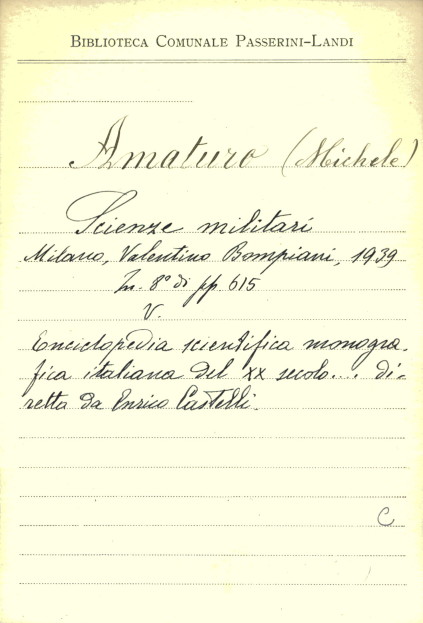 BIBLIOTECA COMUNALE PASSERINI-LANDI
Amaturo (Michele)
Scienze militari
Milano, Valentino Bompiani, 1939
In. 8° di pp. 615
V.
Enciclopedia scientifica monogra-
fica italiana del XX secolo... di-
retta da Enrico Castelli.
C